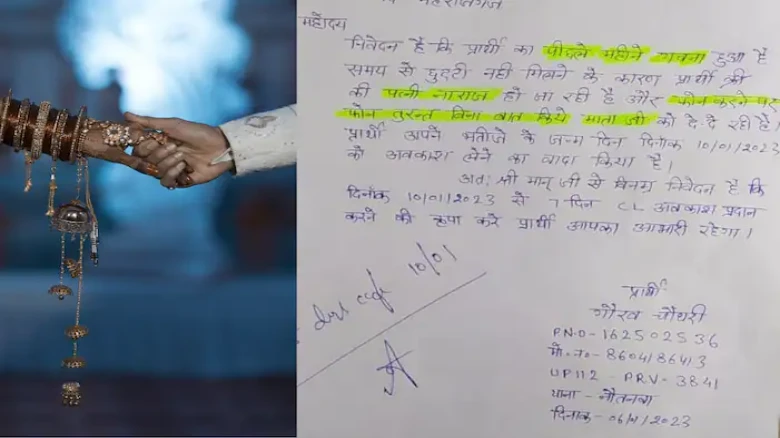 महराजगंज
महोदय
निवेदन है कि प्रार्थी का पीछले महीने गावना हुआ है
समय से छुट्टी नही मिलने के कारण प्रार्थी श्री
की पत्नी नाराज हो जा रही है और फोन करने पर
फोन तुरन्त बिना बात किये माता जी को दे-दे रही है।
प्रार्थी अपने भतीजे के जन्म दिन दिनांक 10/01/2023
को अवकाश लेने का वादा किया है।
अतः श्री मान् जी से विनम्र निवेदन है कि
दिनांक 10/01/2023 से 7 दिन CL अवकाश प्रदान
करने की कृपा करे प्रार्थी आपका आभारी रहेगा।
10/01
प्रार्थी
गौरव चौधरी
P.N.O- 162502536
मो.न०- 8604186413
UP112 - PRV- 3841
थाना - नौतनवा
दिनांक - 06/01/2023